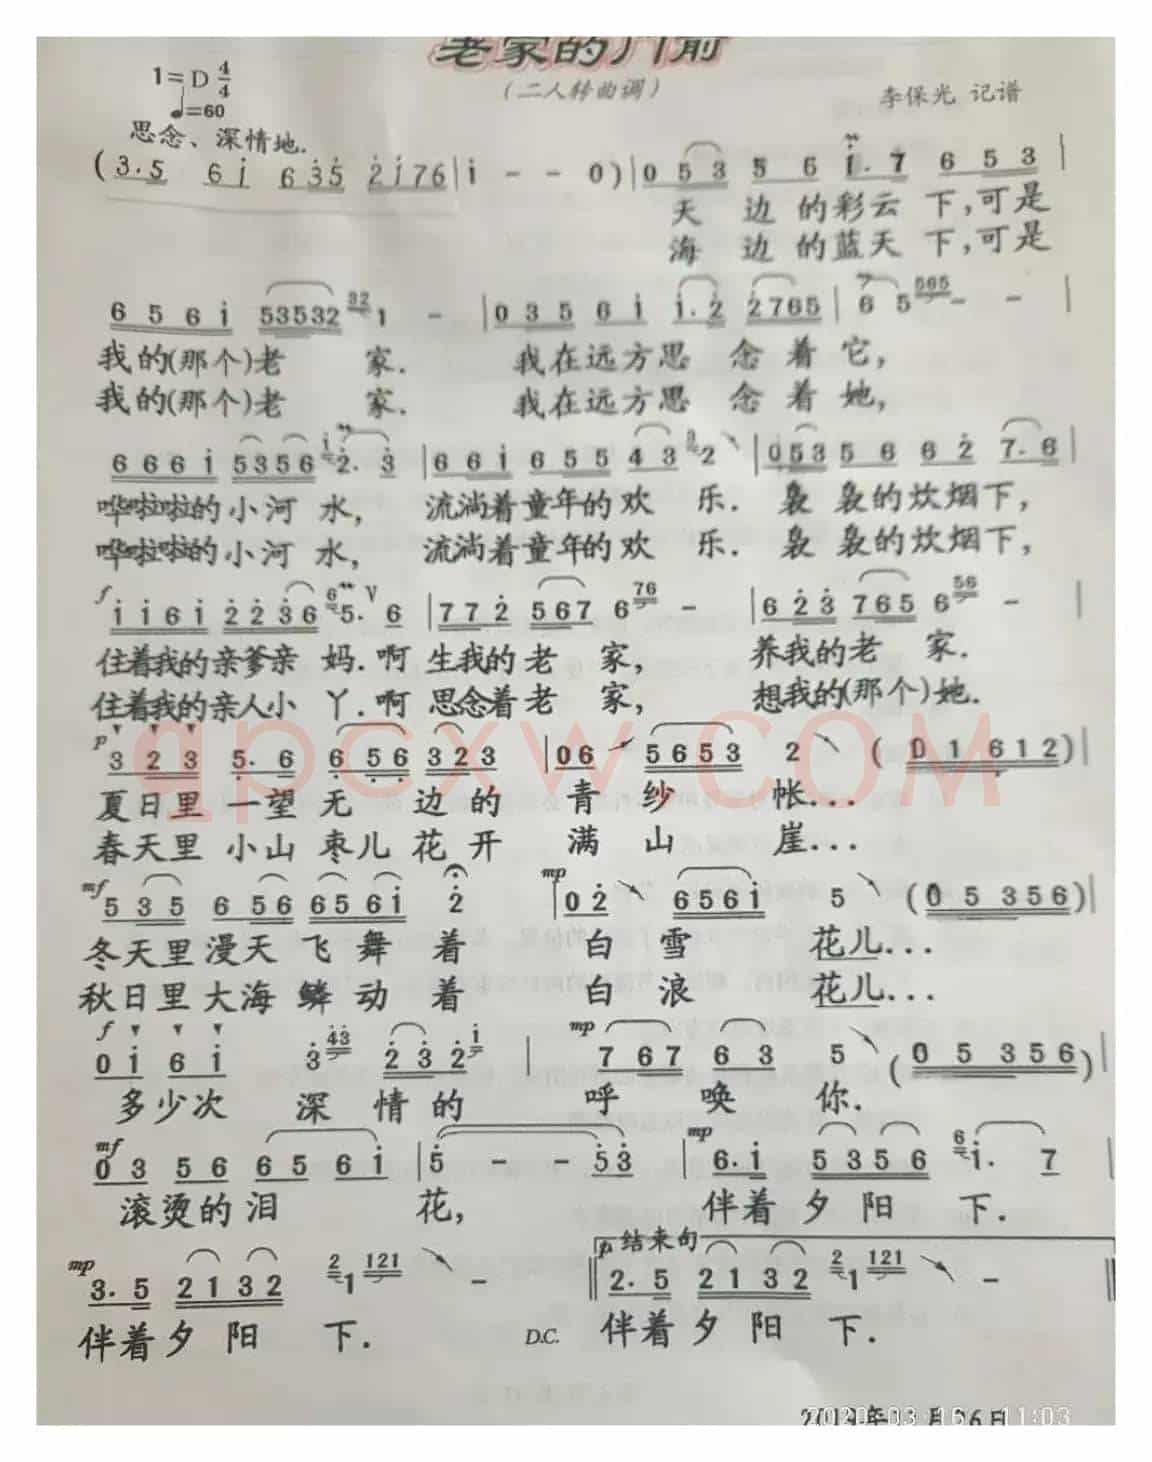 老家的门前
（二人转曲调）
1=D 4/4
♩=60
李保光 记谱
思念、深情地.
(3.5 6i 63̇5̇ 2̇i76|i - - 0)|0 53 5 6 i.7 6 53|
天 边 的彩云 下,可是
海 边 的蓝天 下,可是
656i 53532 32 1 - |0 35 6i i.2̇ 2̇765|6 5 565 - - |
我的(那个)老 家. 我在远方思 念 着 它,
我的(那个)老 家. 我在远方思 念 着 她,
666i 5356 i 2̇.3̇ |66i 655 43 3 2 |053 56 62̇ 7.6|
哗啦啦的小河 水, 流淌着童年的欢 乐. 袅 袅的炊烟下,
哗啦啦的小河 水, 流淌着童年的欢 乐. 袅 袅的炊烟下,
f ii6i 2̇2̇3̇6 6 5. V 6 |772̇ 567 6 76 - |62̇3̇ 765 6 56 - |
住着我的亲爹亲 妈.啊 生我的老 家, 养我的老 家.
住着我的亲人小 丫.啊 思念着老 家, 想我的(那个)她.
qpcxw.COM
p 323 5̣.6̣ 6̣5̣6̣ 323 |06 5653 2 (0 1 6̣12)|
夏日里 一望无 边的 青 纱 帐...
春天里 小山 枣儿 花 开 满 山 崖...
mf 535 656 6561̇ 2̇ | mp 02̇ 6561̇ 5 (0 5 356)|
冬天里漫天 飞 舞 着 白 雪 花儿...
秋日里大海 鳞 动 着 白 浪 花儿...
f 0i 6i 3̇ 4̇3̇ 2̇3̇2̇ i | mp 767 63 5 (0 5 356)|
多少次 深 情 的 呼 唤 你.
mf 03 56 65 6i |5̇ - - 5̇3̇| mp 6.i 5356 6 i. 7|
滚烫的泪 花, 伴着夕 阳 下.
mp 3.5 2132 2 1 121 - ‖ p 结束句 2.5 2132 2 1 121 - ‖
伴着夕 阳 下. D.C. 伴着夕 阳 下.